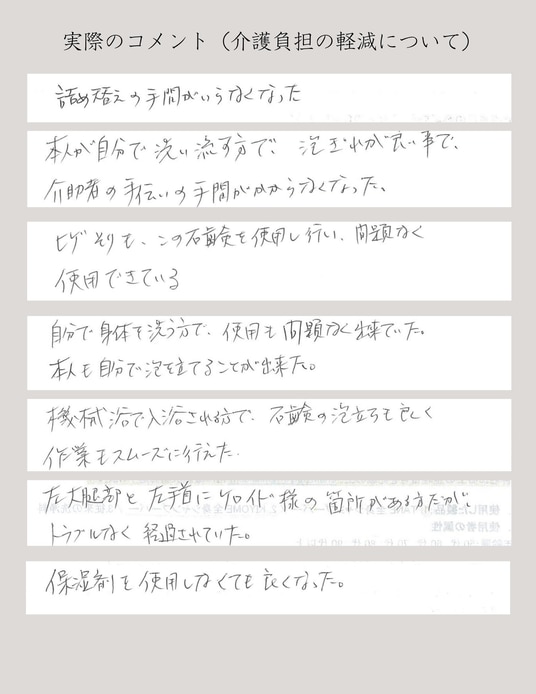 実際のコメント（介護負担の軽減について）
詰め替えの手間がいらなくなった
本人が自分で洗い流す方で、泡ぎれが良い事で、
介助者の手伝いの手間がかからなくなった。
ヒゲそりも、この石鹸を使用し行い、問題なく
使用できている
自分で身体を洗う方で、使用も問題なく出来ていた。
本人も自分で泡を立てることが出来た。
機械浴で入浴される方で、石鹸の泡立ちも良く
作業もスムーズに行えた.
左大腿部と左手首にケロイド様の箇所がある方だが、
トラブルなく経過されていた。
保湿剤を使用しなくても良くなった。